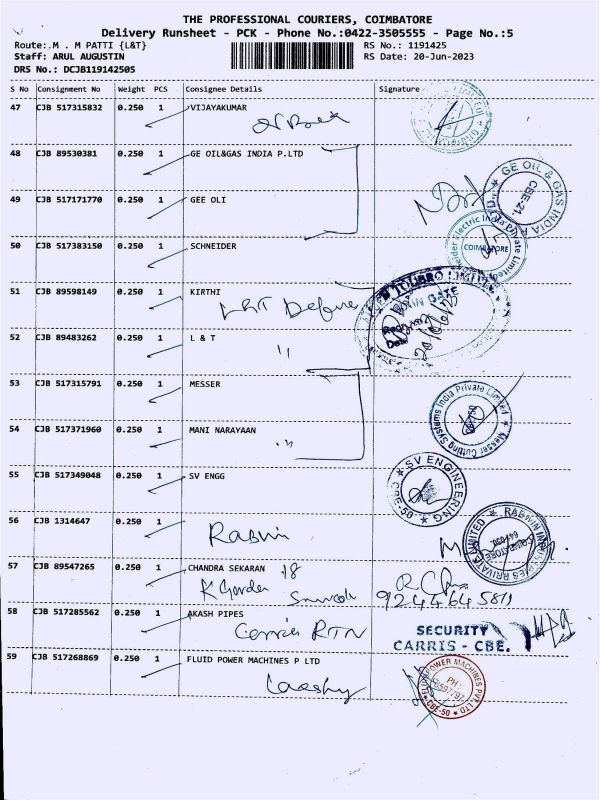 THE PROFESSIONAL COURIERS, COIMBATORE
Delivery Runsheet - PCK - Phone No.:0422-3505555 - Page No.:5
Route: M . M PATTI {L&T} RS No.: 1191425
Staff: ARUL AUGUSTIN RS Date: 20-Jun-2023
DRS No.: DCJB119142505
S No Consignment No Weight PCS Consignee Details Signature
47 CJB 517315832 0.250 1 VIJAYAKUMAR
48 CJB 89530381 0.250 1 GE OIL&GAS INDIA P.LTD
GE OIL & GAS INDIA
CBE-21
49 CJB 517171770 0.250 1 GEE OLI
50 CJB 517383150 0.250 1 SCHNEIDER
Electric India Private Limited
COIMBATORE
51 CJB 89598149 0.250 1 KIRTHI
L&T Defence
TOUBRO LIMITED
MAIN GATE
20/06/23
52 CJB 89483262 0.250 1 L & T
"
53 CJB 517315791 0.250 1 MESSER
Messer Cutting Systems India Private Limited
54 CJB 517371960 0.250 1 MANI NARAYAAN
"
55 CJB 517349048 0.250 1 SV ENGG
SV ENGINEERING
CBE-50
56 CJB 1314647 0.250 1
Rabwin
RABWIN INDUSTRIES PRIVATE LIMITED
COIMBATORE
57 CJB 89547265 0.250 1 CHANDRA SEKARAN
58 CJB 517285562 0.250 1 AKASH PIPES
Carris RTN
SECURITY
CARRIS - CBE.
59 CJB 517268869 0.250 1 FLUID POWER MACHINES P LTD
FLUID POWER MACHINES PVT. LTD
PH:
CBE-50